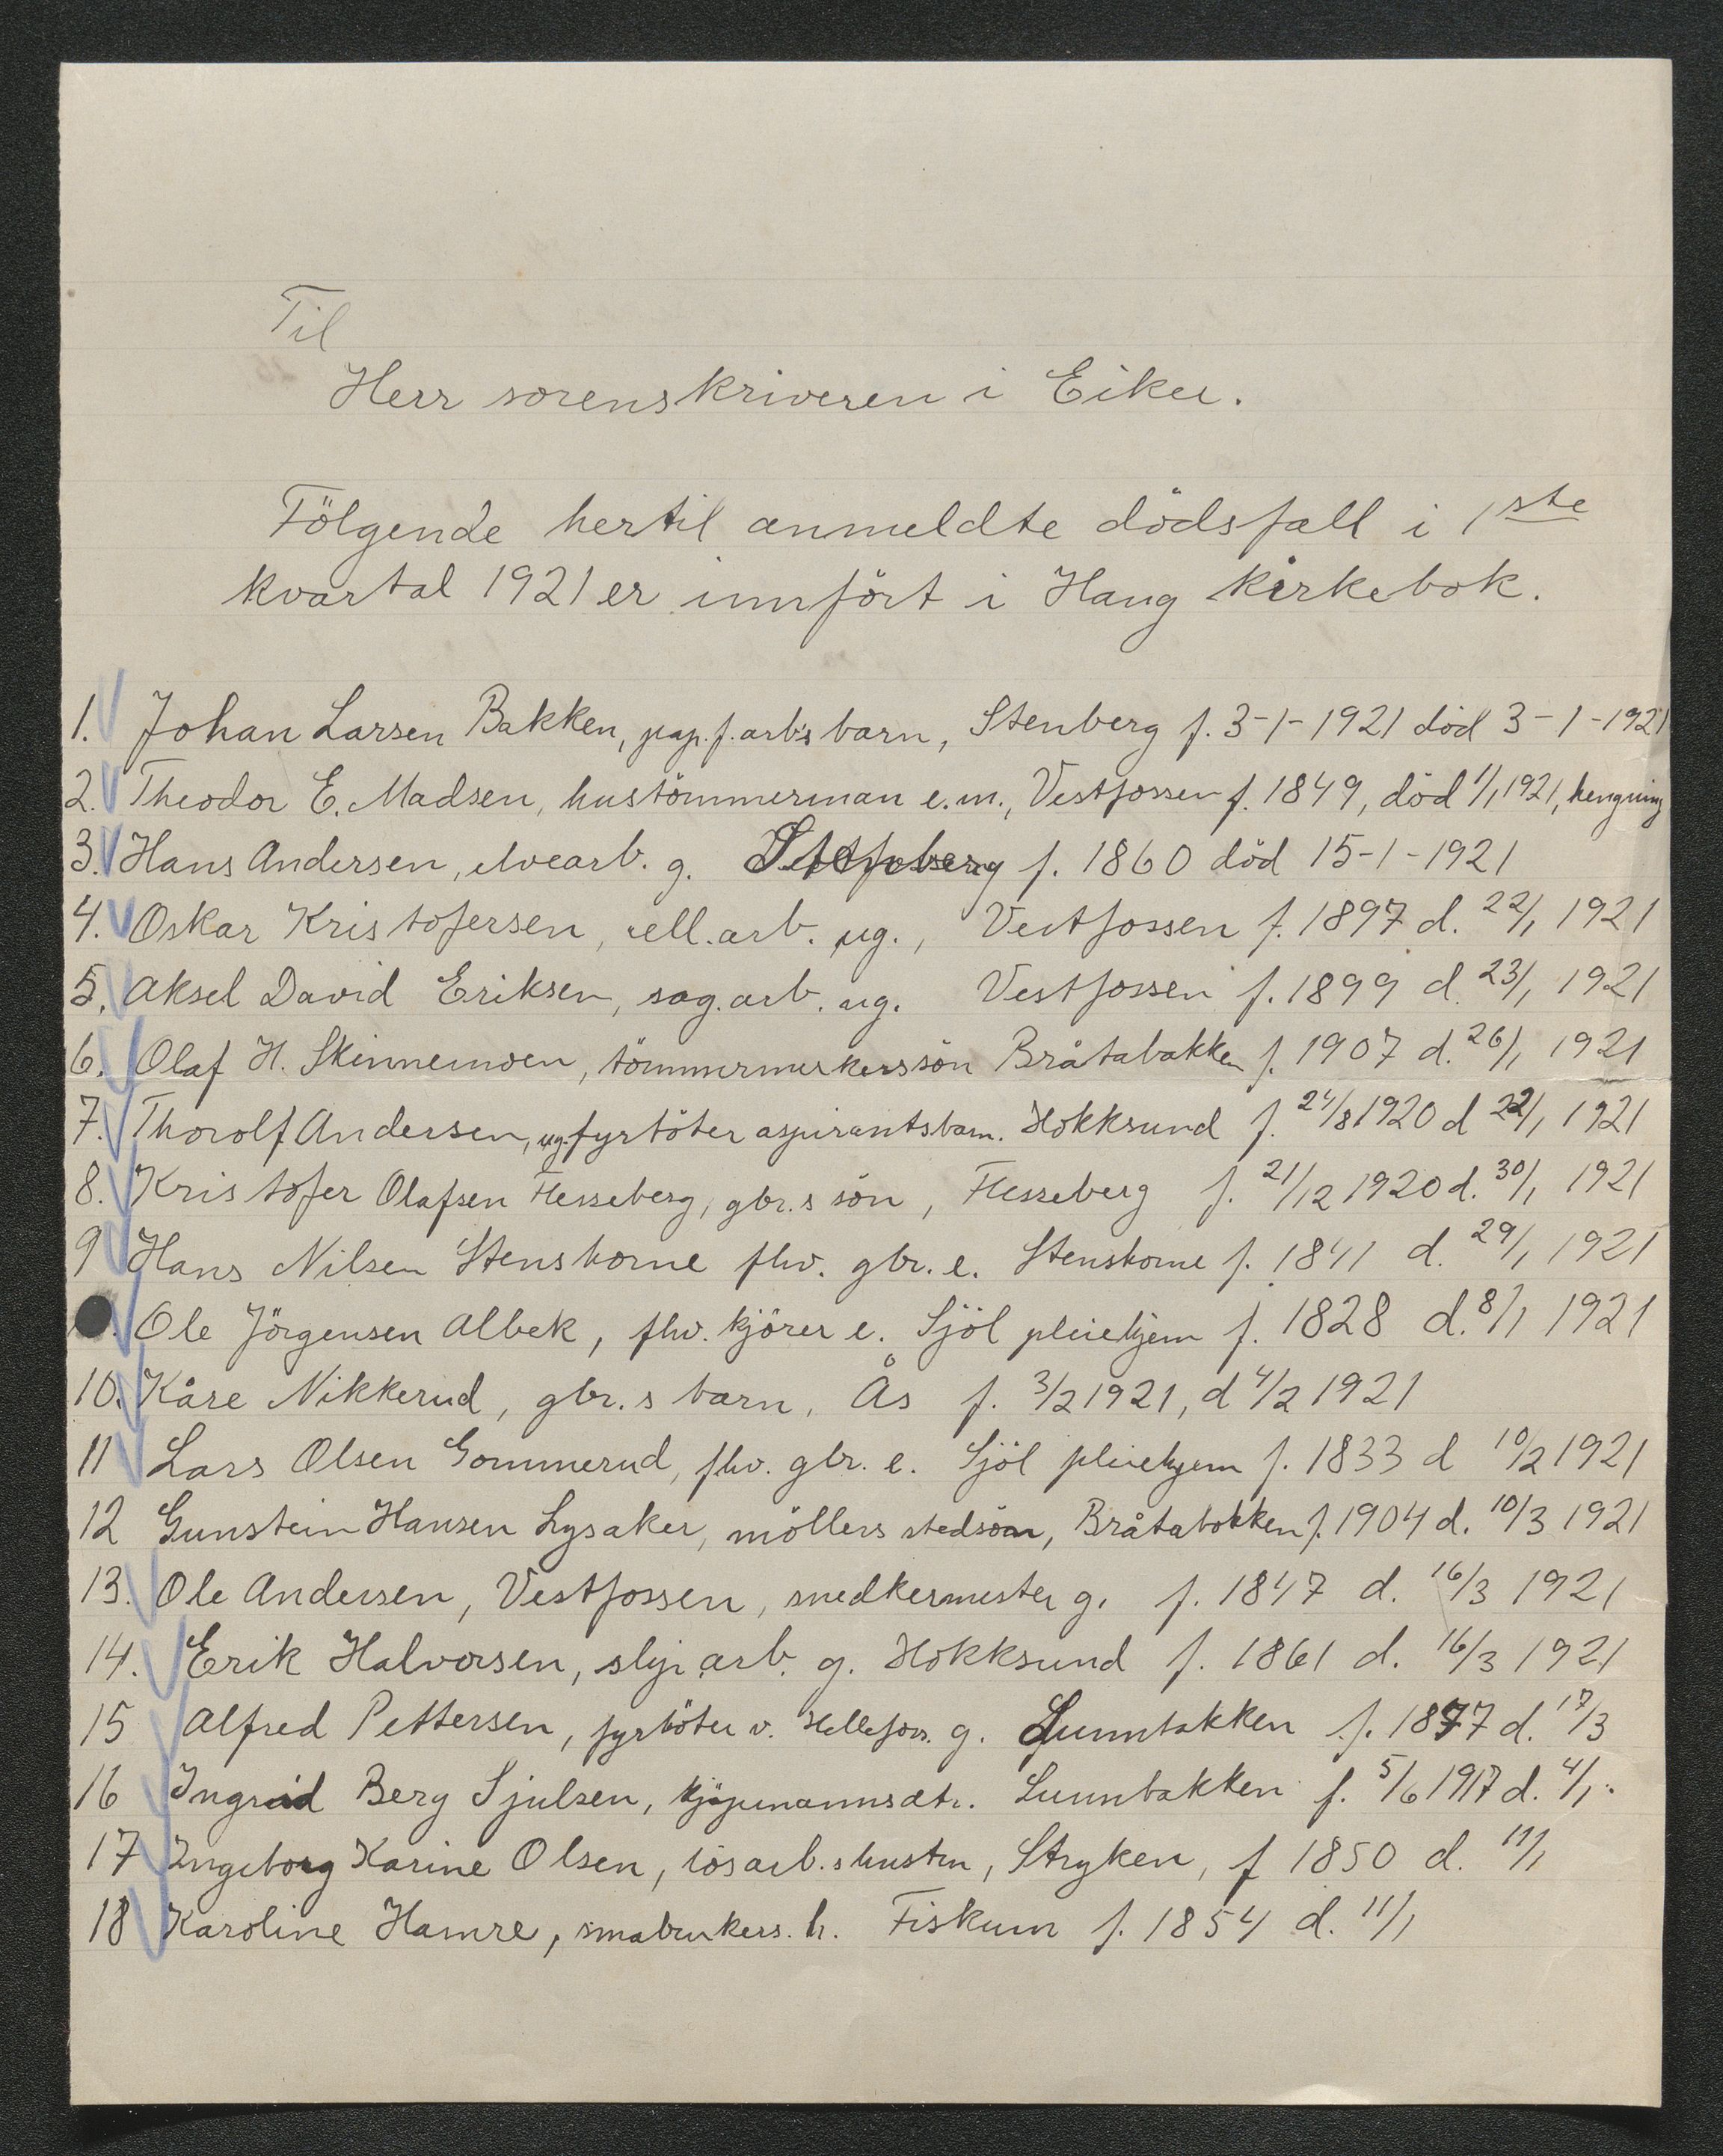 Til
Herr sorenskriveren i Eiker.
Fölgende hertil anmeldte dödsfall i 1ste
kvartal 1921 er innfört i Haug kirkebok.
1. Johan Larsen Bakken, pap.f.arb's barn, Stenberg f. 3-1-1921 död 3-1-1921
2. Theodor E. Madsen, hustömmerman e.m., Vestfossen f. 1849, död 1/1 1921, hengning
3. Hans Andersen, elvearb. g. f. 1860 död 15-1-1921
4. Oskar Kristofersen, cell.arb. ug., Vestfossen f. 1897 d. 22/1 1921
5. Aksel David Eriksen, sag.arb. ug. Vestfossen f. 1899 d. 23/1 1921
6. Olaf H. Skinnemoen, tömmermerkerssön Bråtabakken f. 1907 d. 26/1 1921
7. Thorolf Andersen, ug. fyrböter aspirantsbarn. Hokksund f. 24/8 1920 d 22/1 1921
8. Kristofer Olafsen Flesseberg, gbr.s sön, Flesseberg f. 21/12 1920 d. 30/1 1921
9 Hans Nilsen Stenshorne fhv. gbr. e. Stenshorne f. 1841 d. 29/1 1921
Ole Jörgensen Albek, fhv. kjörer e. Sjöl pleiehjem f. 1828 d. 8/1 1921
10. Kåre Nikkerud, gbr.s barn, Ås f. 3/2 1921, d 4/2 1921
11 Lars Olsen Gommerud, fhv. gbr. e. Sjöl pleiehjem f. 1833 d 10/2 1921
12 Gunstein Hansen Lysaker, möllers stedsön, Bråtabakken f. 1904 d. 10/3 1921
13. Ole Andersen, Vestfossen, snedkermester g. f. 1847 d. 16/3 1921
14. Erik Halvorsen, slip.arb. g. Hokksund f. 1861 d. 16/3 1921
15 Alfred Pettersen, fyrböter v. Hellefoss. g. Lunnbakken f. 1877 d. 17/3
16 Ingrid Berg Sjulsen, kjöpmannsdtr. Lunnbakken f. 5/6 1917 d. 4/1.
17 Ingeborg Karine Olsen, lösarb.s hustru, Stryken, f 1850 d. 11/1
18 Karoline Hamre, småbrukers. h. Fiskum f. 1854 d. 11/1